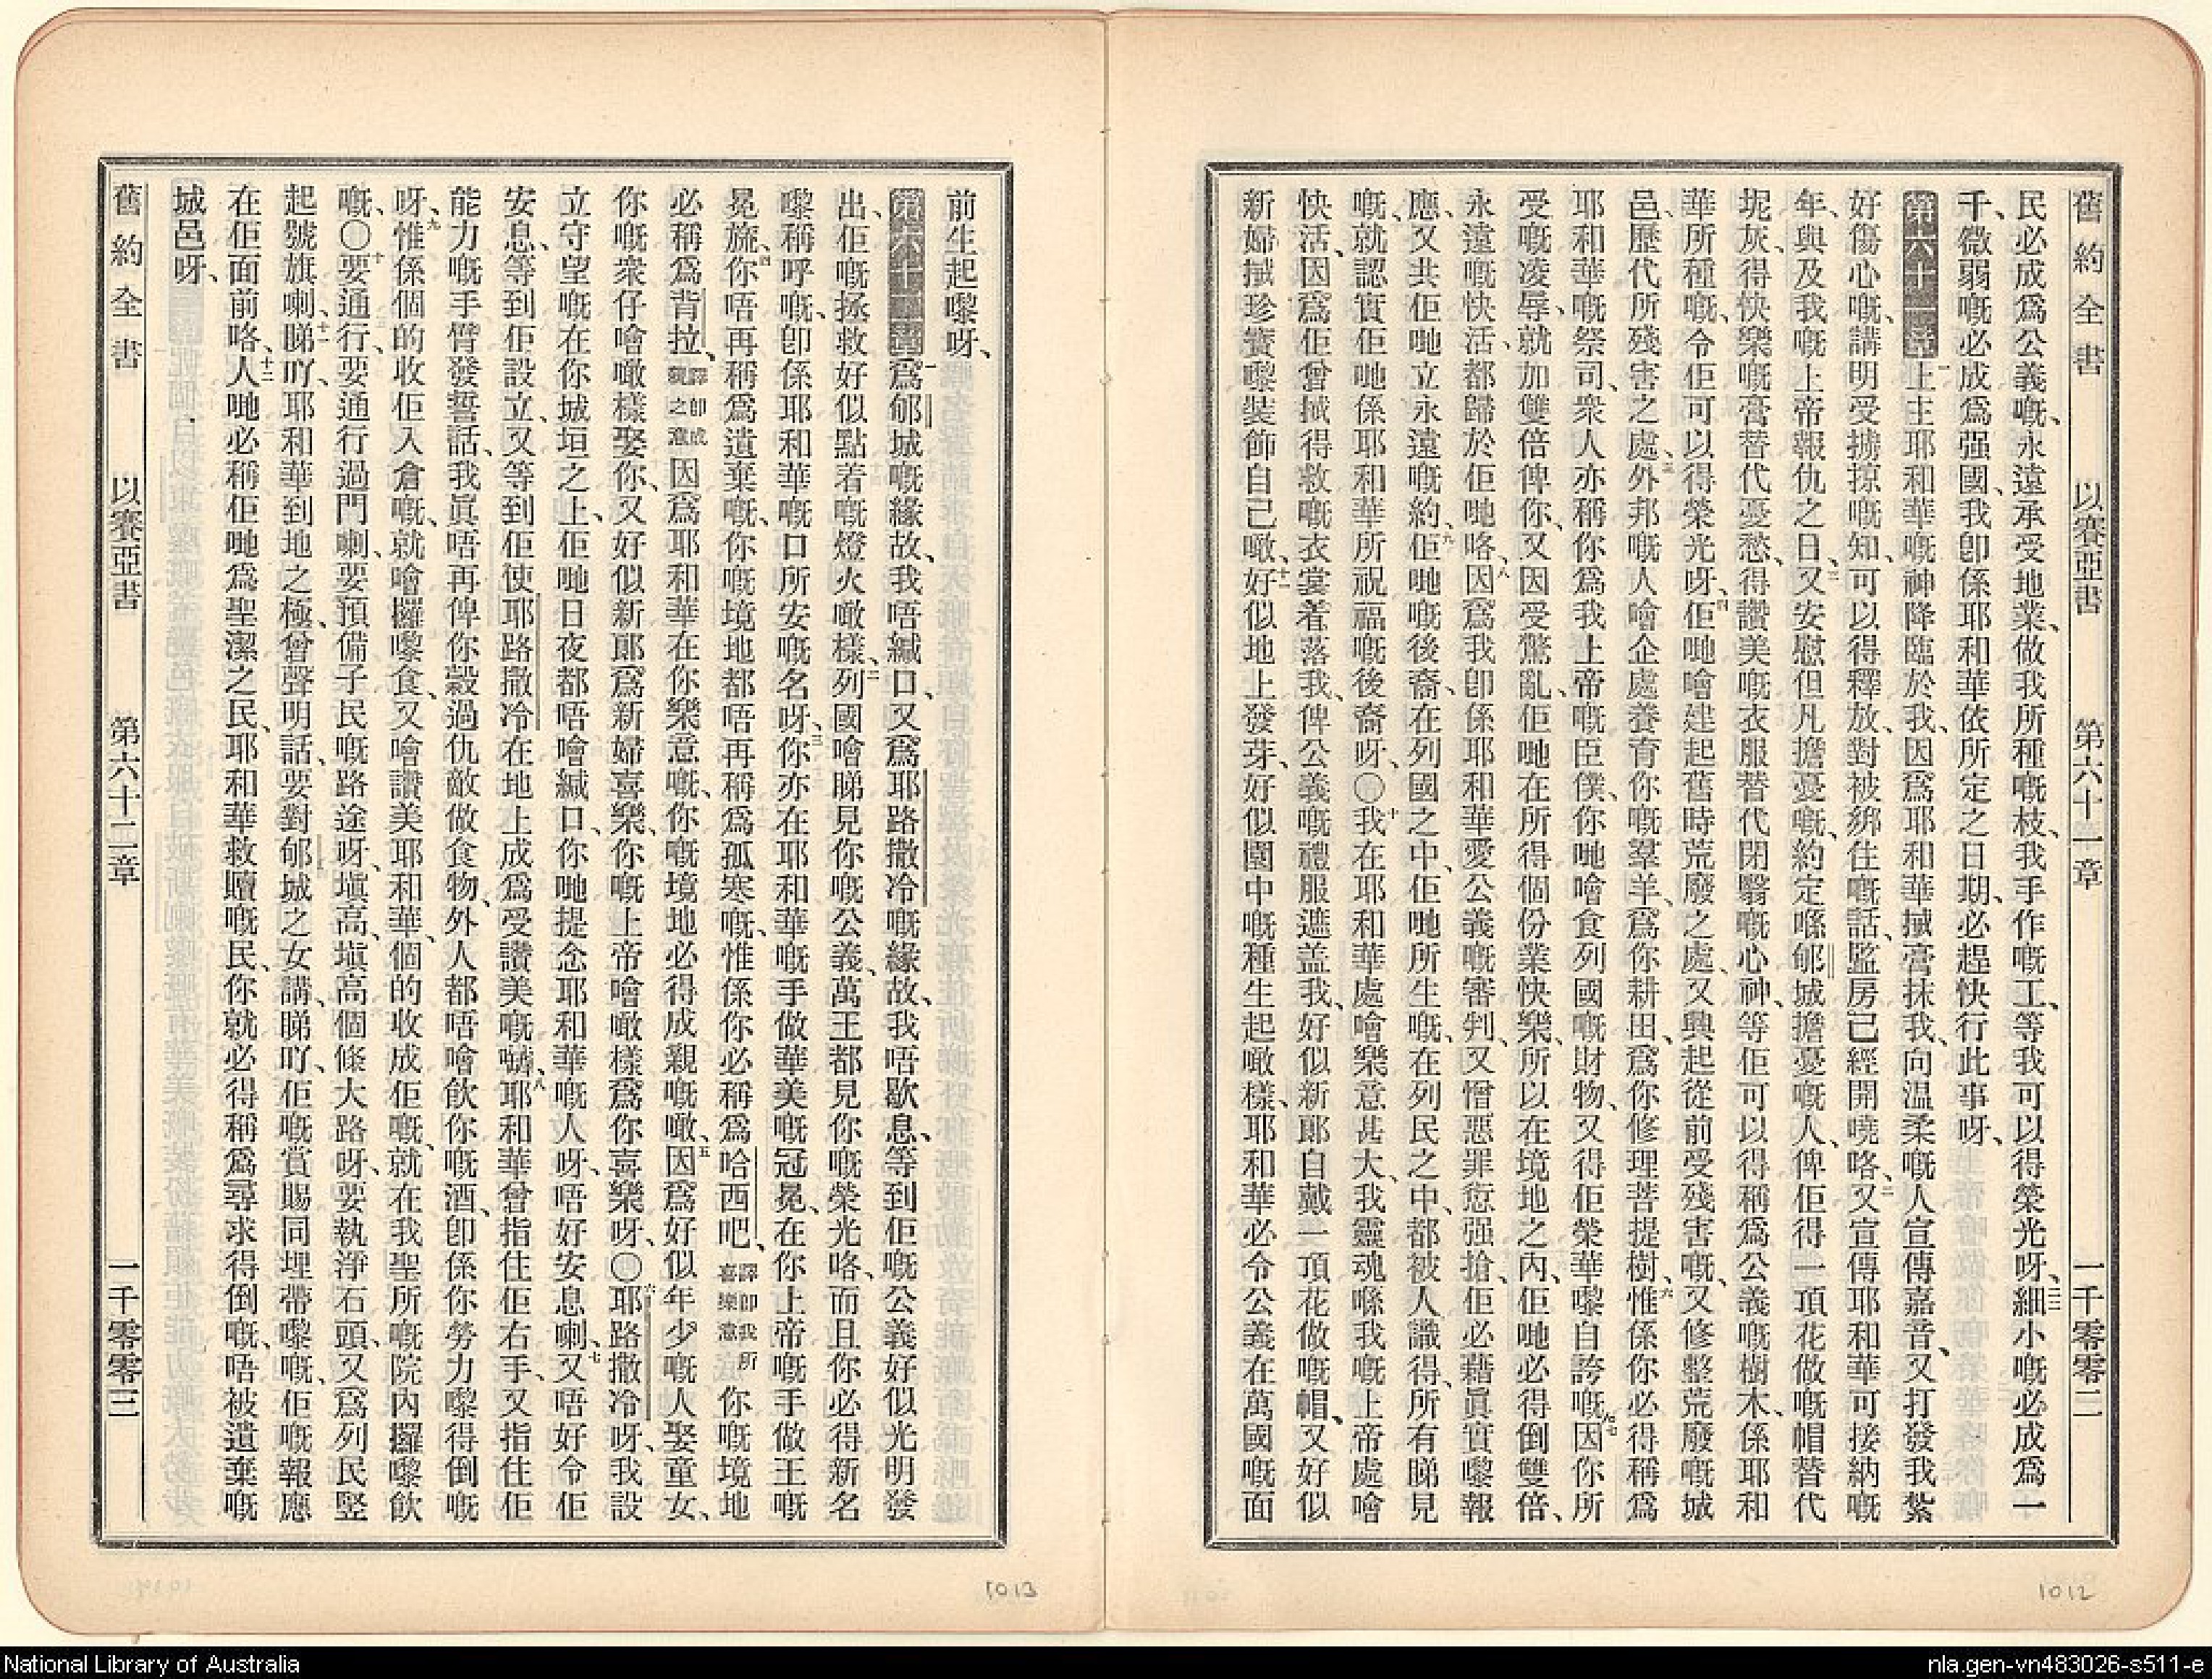 舊約全書 以賽亞書 第六十一章 一千零零二
民必成爲公義嘅、永遠承受地業、做我所種嘅枝、我手作嘅工、等我可以得榮光呀、二二細小嘅必成爲一
千、微弱嘅必成爲强國、我卽係耶和華依所定之日期、必趕快行此事呀、
第六十一章 一上主耶和華嘅神降臨於我、因爲耶和華搣膏抹我、向温柔嘅人宣傳嘉音、又打發我紮
好傷心嘅、講明受擄掠嘅知、可以得釋放、對被綁住嘅話、監房已經開曉咯、二又宣傳耶和華可接納嘅
年、與及我嘅上帝報仇之日、三又安慰但凡擔憂嘅、約定喺郇城擔憂嘅人、俾佢得一頂花做嘅帽替代
坭灰、得快樂嘅膏替代憂愁、得讚美嘅衣服替代閉翳嘅心神、等佢可以得稱爲公義嘅樹木、係耶和
華所種嘅、令佢可以得榮光呀、四佢哋噲建起舊時荒廢之處、又興起從前受殘害嘅、又修整荒廢嘅城
邑、歷代所殘害之處、五外邦嘅人噲企處養育你嘅羣羊、爲你耕田、爲你修理菩提樹、六惟係你必得稱爲
耶和華嘅祭司、衆人亦稱你爲我上帝嘅臣僕、你哋噲食列國嘅財物、又得佢榮華嚟自誇嘅、七因你所
受嘅凌辱、就加雙倍俾你、又因受驚亂、佢哋在所得個份業快樂、所以在境地之內、佢哋必得倒雙倍、
永遠嘅快活、都歸於佢哋咯、八因爲我卽係耶和華、愛公義嘅審判、又憎惡罪愆强搶、佢必藉眞實嚟報
應、又共佢哋立永遠嘅約、九佢哋嘅後裔、在列國之中、佢哋所生嘅、在列民之中、都被人識得、所有睇見
嘅、就認實佢哋係耶和華所祝福嘅後裔呀、〇十我在耶和華處噲樂意甚大、我靈魂喺我嘅上帝處噲
快活、因爲佢曾搣得救嘅衣裳着落我、俾公義嘅禮服遮盖我、好似新郞自戴一頂花做嘅帽、又好似
新婦搣珍寶嚟裝飾自己噉、十一好似地上發芽、好似園中嘅種生起噉樣、耶和華必令公義在萬國嘅面
前生起嚟呀、
第六十二章 一爲郇城嘅緣故、我唔緘口、又爲耶路撒冷嘅緣故、我唔歇息、等到佢嘅公義好似光明發
出、佢嘅拯救好似點着嘅燈火噉樣、二列國噲睇見你嘅公義、萬王都見你嘅榮光咯、而且你必得新名
嚟稱呼嘅、卽係耶和華嘅口所安嘅名呀、三你亦在耶和華嘅手做華美嘅冠冕、在你上帝嘅手做王嘅
冕旒、四你唔再稱爲遺棄嘅、你嘅境地都唔再稱爲孤寒嘅、惟係你必稱爲哈西吧、譯卽我所喜樂意 你嘅境地
必稱爲背拉、譯卽成親之意 因爲耶和華在你樂意嘅、你嘅境地必得成親嘅噉、五因爲好似年少嘅人娶童女、
你嘅衆仔噲噉樣娶你、又好似新郞爲新婦喜樂、你嘅上帝噲噉樣爲你喜樂呀、〇六耶路撒冷呀、我設
立守望嘅在你城垣之上、佢哋日夜都唔噲緘口、你哋提念耶和華嘅人呀、唔好安息喇、七又唔好令佢
安息、等到佢設立、又等到佢使耶路撒冷在地上成爲受讚美嘅嚹、八耶和華曾指住佢右手、又指住佢
能力嘅手臂發誓話、我眞唔再俾你穀過仇敵做食物、外人都唔噲飲你嘅酒、卽係你勞力嚟得倒嘅
呀、九惟係個的收佢入倉嘅、就噲攞嚟食、又噲讚美耶和華、個的收成佢嘅、就在我聖所嘅院內攞嚟飲
嘅、〇十要通行、要通行過門喇、要預備子民嘅路途呀、塡高、塡高個條大路呀、要執淨石頭、又爲列民竪
起號旗喇、十一睇吖、耶和華到地之極、曾聲明話、要對郇城之女講、睇吖、佢嘅賞賜同埋帶嚟嘅、佢嘅報應
在佢面前咯、十二人哋必稱佢哋爲聖潔之民、耶和華救贖嘅民、你就必得稱爲尋求得倒嘅、唔被遺棄嘅
城邑呀、
舊約全書 以賽亞書 第六十二章 一千零零三
1013
1012
National Library of Australia
nla.gen-vn483026-s511-e